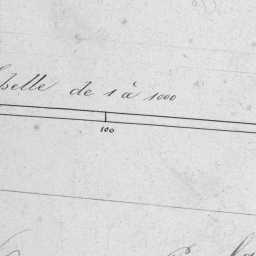 chelle de 1 à 1000
100